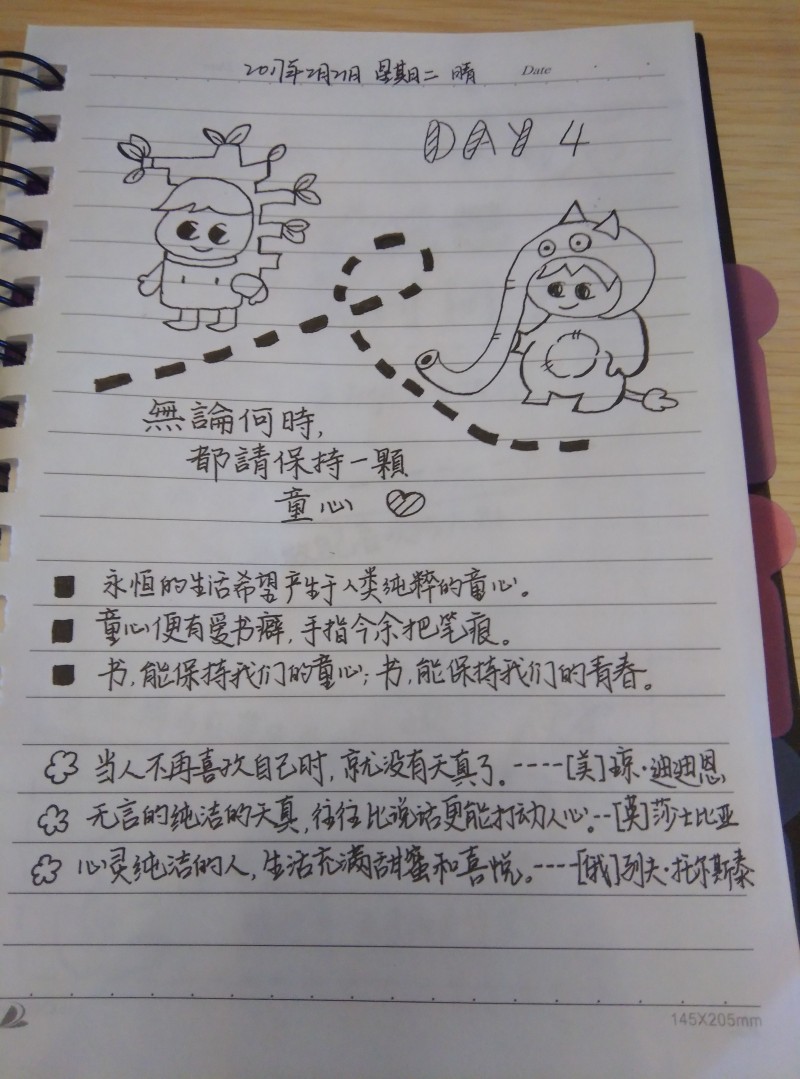 2017年2月21日 星期二 晴 Date
DAY 4
無論何時,
都請保持一顆
童心
永恒的生活希望产生于人类纯粹的童心。
童心便有爱书癖,手指今余把笔痕。
书,能保持我们的童心;书,能保持我们的青春。
当人不再喜欢自己时,就没有天真了。----[美]琼·迪迪恩
无言的纯洁的天真,往往比说话更能打动人心。--[英]莎士比亚
心灵纯洁的人,生活充满甜蜜和喜悦。----[俄]列夫·托尔斯泰
145X205mm